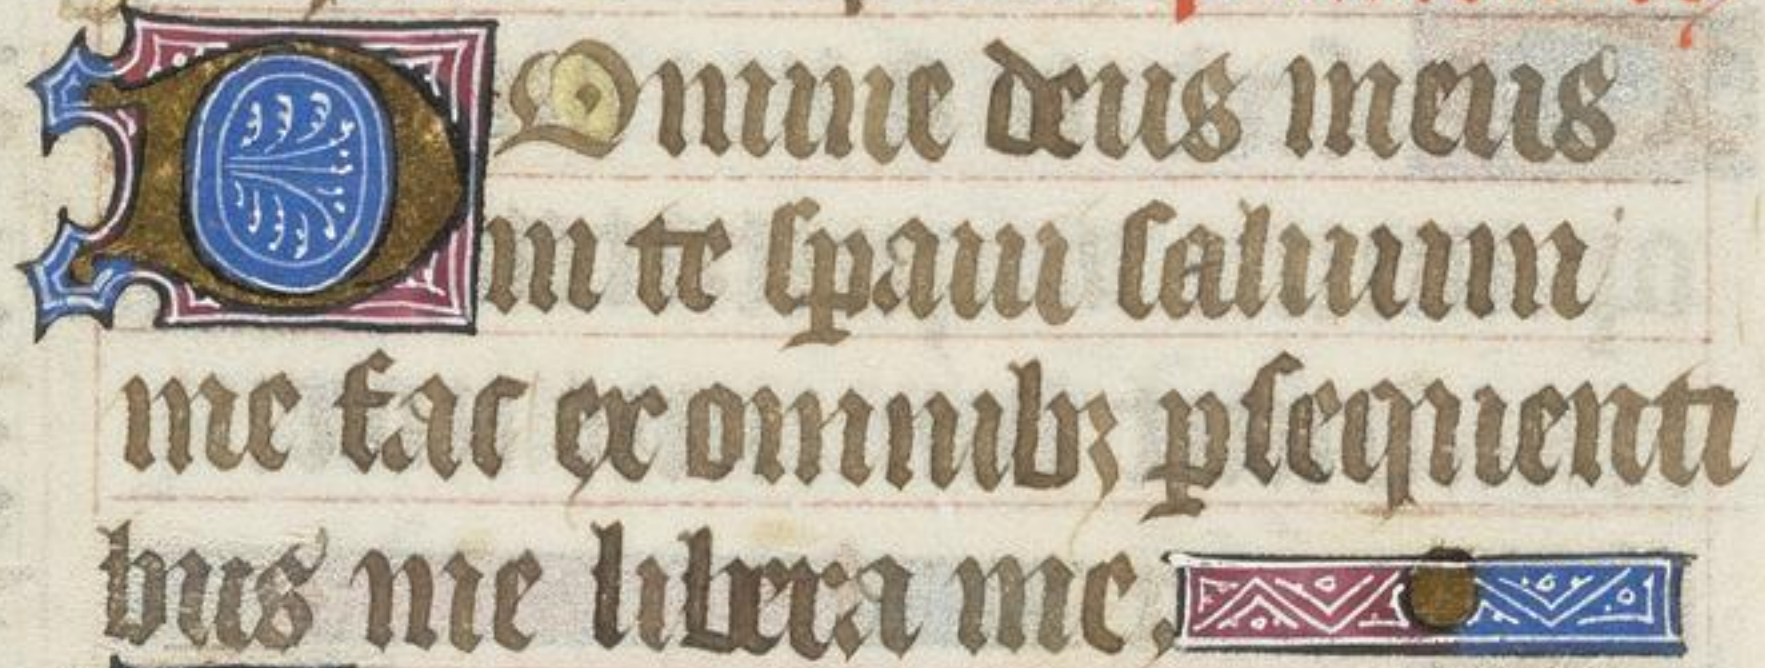 DOmine deus meus
in te speraui saluum
me fac ex omnibꝫ ꝑsequenti
bus me libera me.